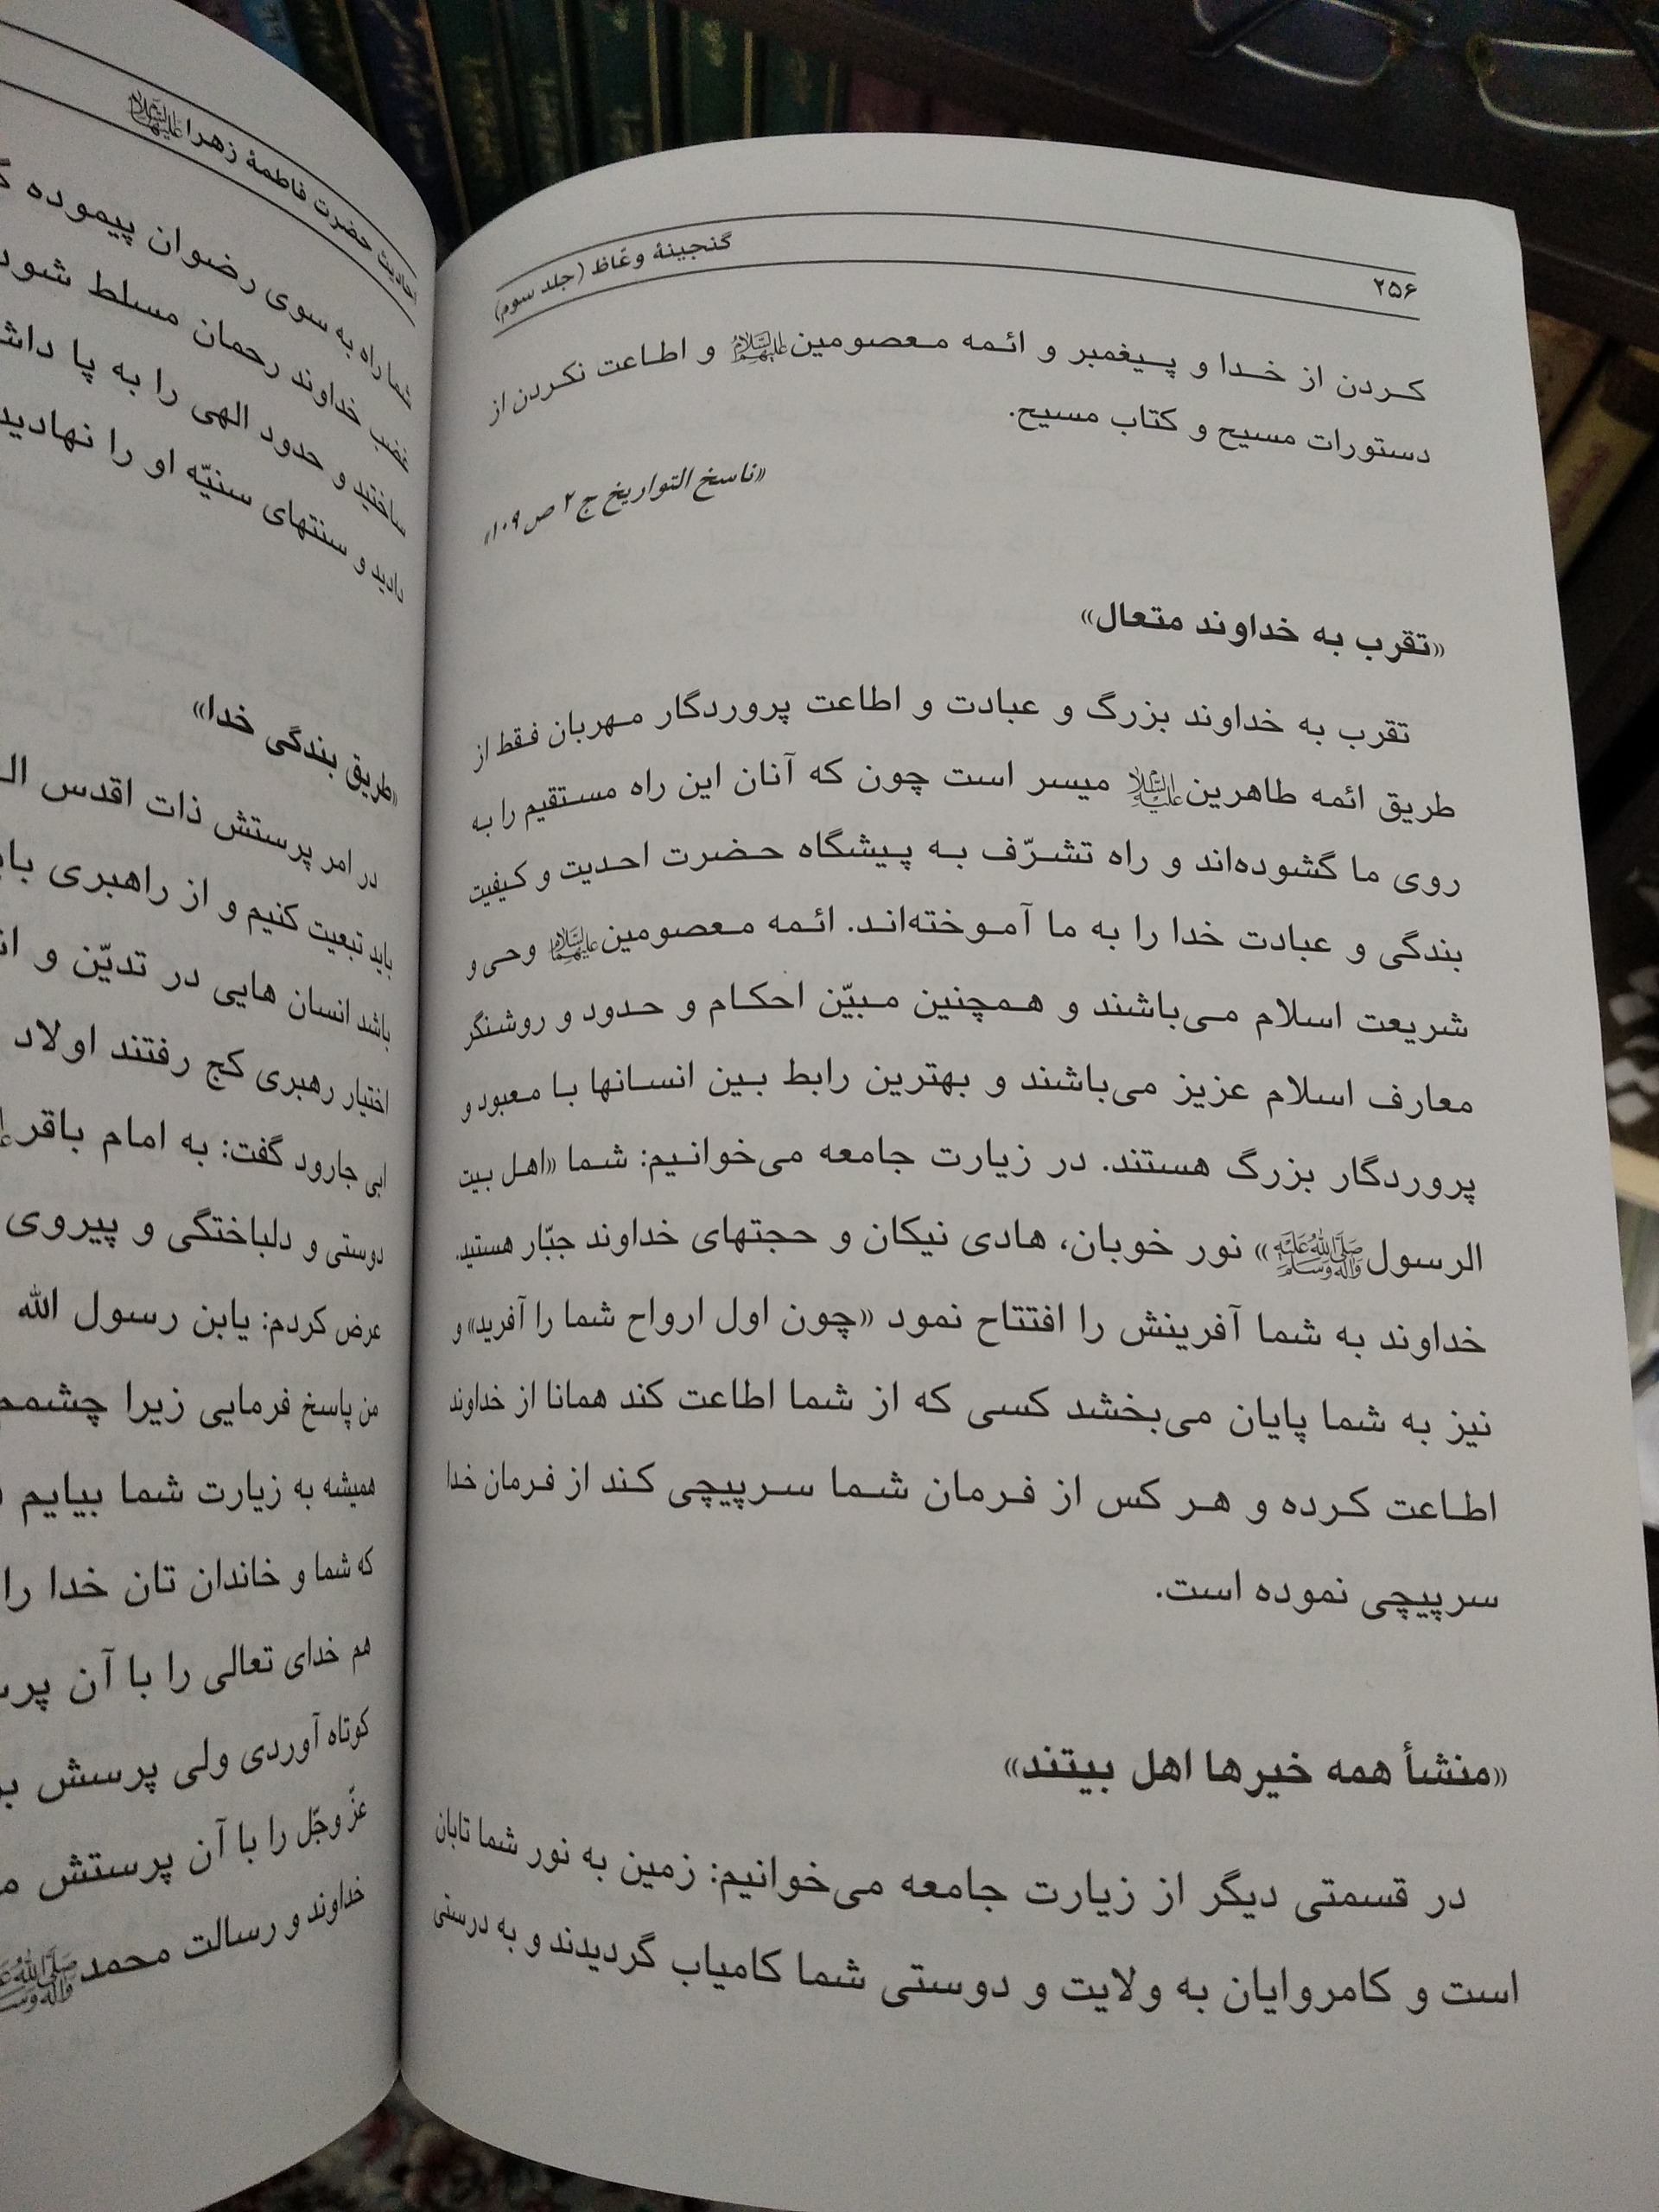 ۲۵۶
گنجینهٔ وعّاظ (جلد سوم)
کردن از خدا و پیغمبر و ائمه معصومین علیهم‌السلام و اطاعت نکردن از
دستورات مسیح و کتاب مسیح.
«ناسخ التواریخ ج ۲ ص ۱۰۹»
«تقرب به خداوند متعال»
تقرب به خداوند بزرگ و عبادت و اطاعت پروردگار مهربان فقط از
طریق ائمه طاهرین علیهم‌السلام میسر است چون که آنان این راه مستقیم را به
روی ما گشوده‌اند و راه تشرّف به پیشگاه حضرت احدیت و کیفیت
بندگی و عبادت خدا را به ما آموخته‌اند. ائمه معصومین علیهم‌السلام وحی و
شریعت اسلام می‌باشند و همچنین مبیّن احکام و حدود و روشنگر
معارف اسلام عزیز می‌باشند و بهترین رابط بین انسانها با معبود و
پروردگار بزرگ هستند. در زیارت جامعه می‌خوانیم: شما «اهل بیت
الرسول ﷺ» نور خوبان، هادی نیکان و حجتهای خداوند جبّار هستید.
خداوند به شما آفرینش را افتتاح نمود «چون اول ارواح شما را آفرید» و
نیز به شما پایان می‌بخشد کسی که از شما اطاعت کند همانا از خداوند
اطاعت کرده و هر کس از فرمان شما سرپیچی کند از فرمان خدا
سرپیچی نموده است.
«منشأ همه خیرها اهل بیتند»
در قسمتی دیگر از زیارت جامعه می‌خوانیم: زمین به نور شما تابان
است و کامروایان به ولایت و دوستی شما کامیاب گردیدند و به درستی
احادیث حضرت فاطمهٔ زهرا علیهاالسلام
شما راه به سوی رضوان پیموده
غضب خداوند رحمان مسلط شود
ساختید و حدود الهی را به پا
دادید و سنتهای سنیّه او را نهادید
«طریق بندگی خدا»
در امر پرستش ذات اقدس
باید تبعیت کنیم و از راهبری
باشد انسان هایی در تدیّن و
اختیار رهبری کج رفتند اولاد
ابی جارود گفت: به امام باقر
دوستی و دلباختگی و پیروی
عرض کردم: یابن رسول الله
من پاسخ فرمایی زیرا
همیشه به زیارت شما بیایم
که شما و خاندان تان خدا را
هم خدای تعالی را با آن
کوتاه آوردی ولی پرسش
عزّ وجّل را با آن پرستش
خداوند و رسالت محمد ﷺ